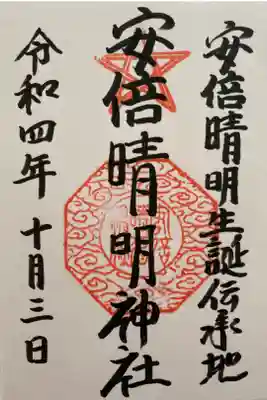 安倍晴明生誕伝承地
安倍晴明神社
令和四年 十月三日